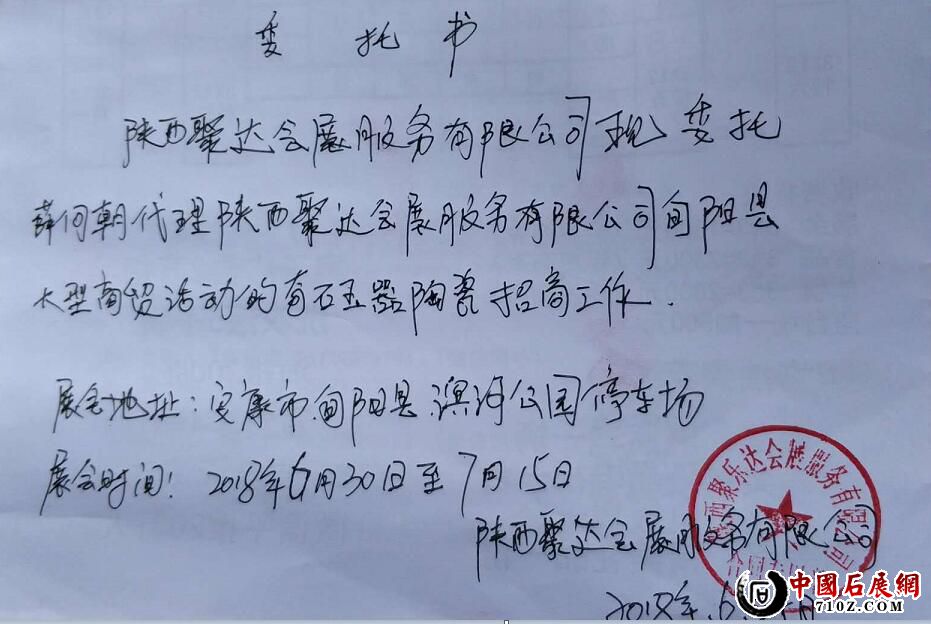 委托书
陕西聚达会展服务有限公司现委托
薛何朝代理陕西聚达会展服务有限公司旬阳县
大型商贸活动的奇石玉器陶瓷招商工作.
展会地址:安康市旬阳县滨河公园停车场
展会时间:2018年6月30日至7月15日
陕西聚达会展服务有限公司
2018年.6
陕西聚乐达会展服务有限公司
中國石展網
71OZ.COM